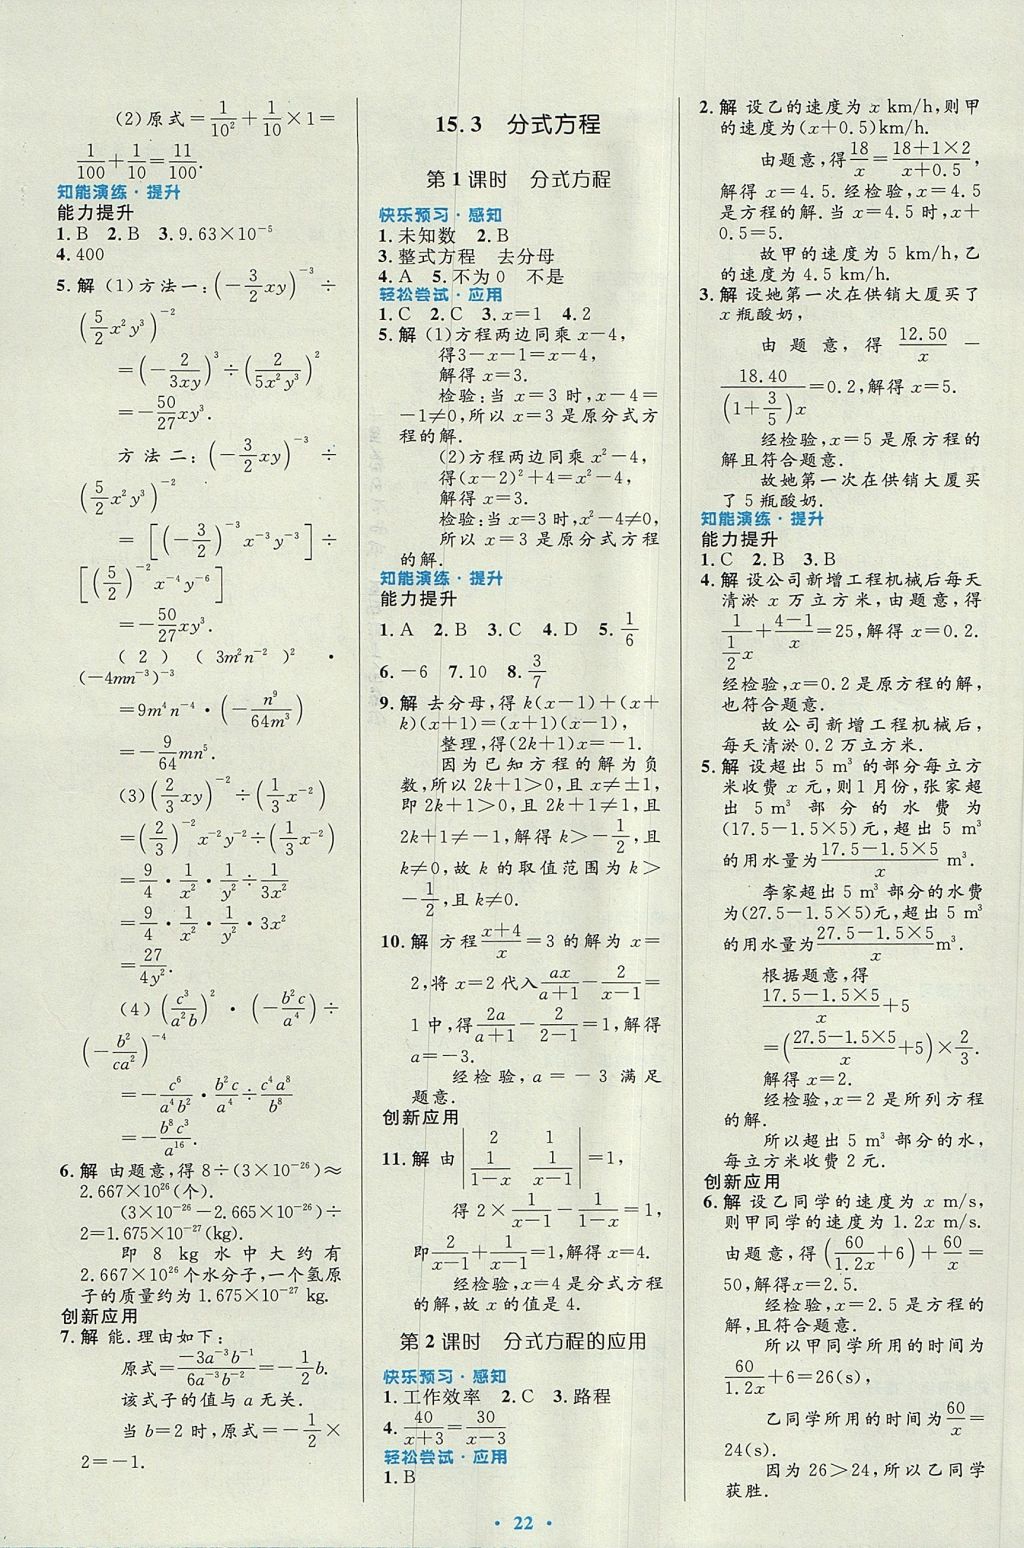 (2)原式=1/10²+1/10×1=
1/100+1/10=11/100.
知能演练·提升
能力提升
1.B 2.B 3.9.63×10⁻⁵
4.400
5.解 (1)方法一:(-3/2xy)⁻³÷
(5/2x²y³)⁻²
=(-2/3xy)³÷(2/5x²y³)²
=-50/27xy³.
方法二:(-3/2xy)⁻³÷
(5/2x²y³)⁻²
=[(-3/2)⁻³x⁻³y⁻³]÷
[(5/2)⁻²x⁻⁴y⁻⁶]
=-50/27xy³.
(2)(3m²n⁻²)²·
(-4mn⁻³)⁻³
=9m⁴n⁻⁴·(-n⁹/64m³)
=-9/64mn⁵.
(3)(2/3xy)⁻²÷(1/3x⁻²)
=(2/3)⁻²x⁻²y⁻²÷(1/3x⁻²)
=9/4·1/x²·1/y²÷1/3x²
=9/4·1/x²·1/y²·3x²
=27/4y².
(4)(c³/a²b)²·(-b²c/a⁴)÷
(-b²/ca²)⁻⁴
=-c⁶/a⁴b²·b²c/a⁴÷c⁴a⁸/b⁸
=-b⁸c³/a¹⁶.
6.解 由题意,得8÷(3×10⁻²⁶)≈
2.667×10²⁶(个).
(3×10⁻²⁶-2.665×10⁻²⁶)÷
2=1.675×10⁻²⁷(kg).
即 8 kg 水中大约有
2.667×10²⁶个水分子,一个氢原
子的质量约为1.675×10⁻²⁷ kg.
创新应用
7.解 能.理由如下:
原式=-3a⁻³b⁻¹/6a⁻³b⁻²=-1/2b.
该式子的值与a无关.
当b=2时,原式=-1/2×
2=-1.
15.3 分式方程
第1课时 分式方程
快乐预习·感知
1.未知数 2.B
3.整式方程 去分母
4.A 5.不为0 不是
轻松尝试·应用
1.C 2.C 3.x=1 4.2
5.解 (1)方程两边同乘x-4,
得3-x-1=x-4,
解得x=3.
检验:当x=3时,x-4=
-1≠0,所以x=3是原分式方
程的解.
(2)方程两边同乘x²-4,
得(x-2)²+4=x²-4,
解得x=3.
检验:当x=3时,x²-4≠0,
所以x=3是原分式方程
的解.
知能演练·提升
能力提升
1.A 2.B 3.C 4.D 5.1/6
6.-6 7.10 8.3/7
9.解 去分母,得k(x-1)+(x+
k)(x+1)=(x+1)(x-1),
整理,得(2k+1)x=-1.
因为已知方程的解为负
数,所以2k+1>0,且x≠±1,
即2k+1>0,且2k+1≠1,且
2k+1≠-1,解得k>-1/2,且
k≠0,故k的取值范围为k>
-1/2,且k≠0.
10.解 方程x+4/x=3的解为x=
2,将x=2代入ax/a+1-2/x-1=
1中,得2a/a+1-2/2-1=1,解得
a=-3.
经检验,a=-3满足
题意.
创新应用
11.解 由|2 1 1/1-x 1/x-1|=1,
得2×1/x-1-1/1-x=1,
即2/x-1+1/x-1=1,解得x=4.
经检验,x=4是分式方程
的解,故x的值是4.
第2课时 分式方程的应用
快乐预习·感知
1.工作效率 2.C 3.路程
4.40/x+3=30/x-3
轻松尝试·应用
1.B
2.解 设乙的速度为x km/h,则甲
的速度为(x+0.5)km/h.
由题意,得18/x=18+1×2/x+0.5,
解得x=4.5.经检验,x=4.5
是方程的解.当x=4.5时,x+
0.5=5.
故甲的速度为5 km/h,乙
的速度为4.5 km/h.
3.解 设她第一次在供销大厦买了
x瓶酸奶,
由题意,得12.50/x-
18.40/(1+3/5)x=0.2,解得x=5.
经检验,x=5是原方程的
解且符合题意.
故她第一次在供销大厦买
了5瓶酸奶.
知能演练·提升
能力提升
1.C 2.B 3.B
4.解 设公司新增工程机械后每天
清淤x万立方米,由题意,得
1/(1/2x)+4-1/x=25,解得x=0.2.
经检验,x=0.2是原方程的解,
也符合题意.
故公司新增工程机械后,
每天清淤0.2万立方米.
5.解 设超出5 m³的部分每立方
米收费x元,则1月份,张家超
出5 m³部分的水费为
(17.5-1.5×5)元,超出5 m³
的用水量为17.5-1.5×5/x m³.
李家超出5 m³部分的水费
为(27.5-1.5×5)元,超出5 m³
的用水量为27.5-1.5×5/x m³.
根据题意,得
17.5-1.5×5/x+5
=(27.5-1.5×5/x+5)×2/3.
解得x=2.
经检验,x=2是所列方程
的解.
所以超出5 m³部分的水,
每立方米收费2元.
创新应用
6.解 设乙同学的速度为x m/s,
则甲同学的速度为1.2x m/s.
由题意,得(60/1.2x+6)+60/x=
50,解得x=2.5.
经检验,x=2.5是方程的
解,且符合题意.
所以甲同学所用的时间为
60/1.2x+6=26(s),
乙同学所用的时间为60/x=
24(s).
因为26>24,所以乙同学
获胜.
· 22 ·